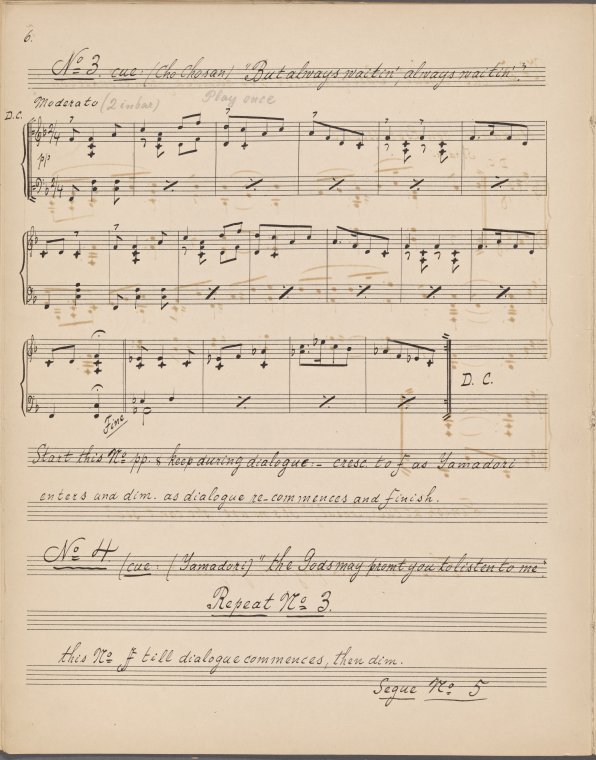 6.
No 3. cue: (Cho Cho san) "But always waitin', always waitin'."
Moderato (2 in bar) Play once
D.C.
2/4
pp
2/4
Fine
D. C.
Start this No pp. & keep during dialogue:- cresc. to f as Yamadori
enters and dim. as dialogue re-commences and finish.
No 4. (cue: (Yamadori) "the Gods may promt you to listen to me".
Repeat No 3.
this No ff till dialogue commences, then dim.
Segue No 5